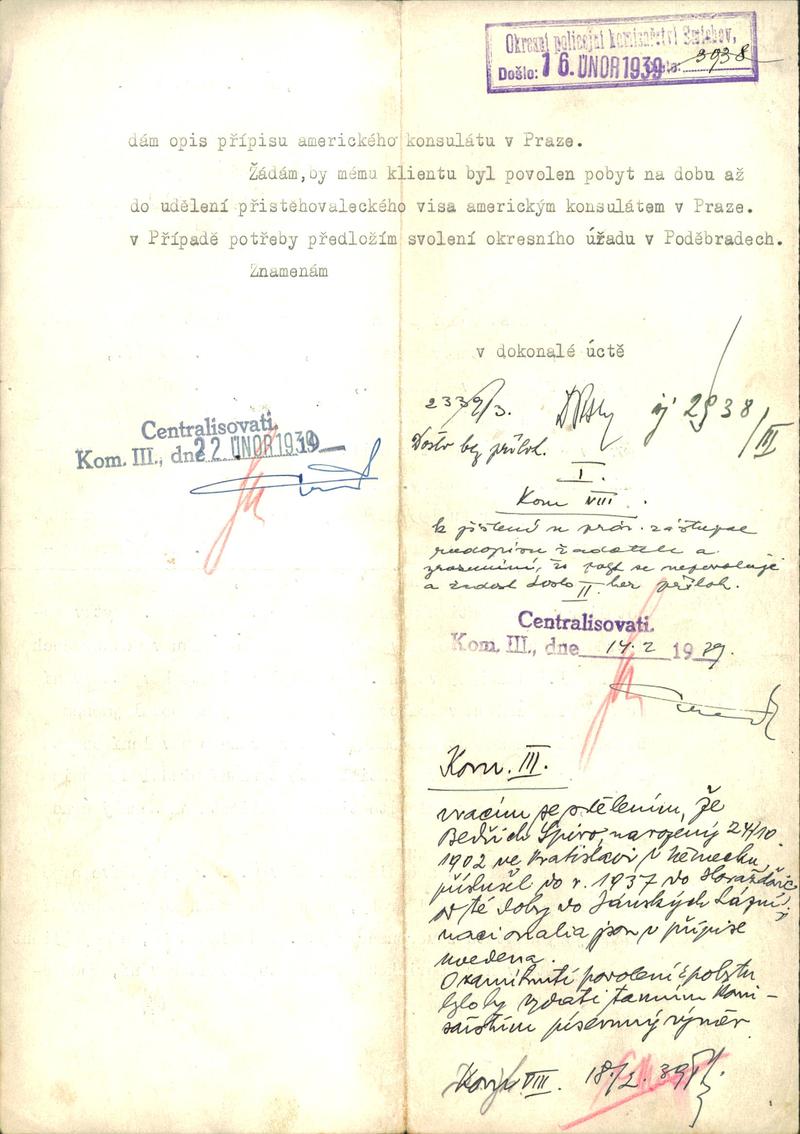 Okresní policejní komisařství Smíchov,
Došlo: 16. ÚNOR 1939 3938
dám opis přípisu amerického konsulátu v Praze.
Žádám,by mému klientu byl povolen pobyt na dobu až
do udělení přistehovaleckého visa americkým konsulátem v Praze.
v Případě potřeby předložím svolení okresního úřadu v Poděbradech.
Znamenám
v dokonalé úctě
2339/3. 2938/III
Došlo bez příloh.
Centralisovati.
Kom. III., dne 22. ÚNOR 1939 19
I.
Kom VIII.
k zjištění u práv. zástupce
žadatele a
že pobyt se nepovoluje
a žádost došla bez příloh.
II.
Centralisovati.
Kom. III., dne 14.2 1939.
Kom. III.
vracím se sdělením, že
Bedřich Spiro, narozený 24/10
1902 ve Vratislavi v Německu,
příslušel do r. 1937 do Horažďovic
od té doby do Jánských Lázní,
nacionalia jsou v přípise
uvedena.
O zamítnutí povolení pobytu
bylo by vydati tamním komi-
sařstvím písemný výměr
VIII. 18./2. 39